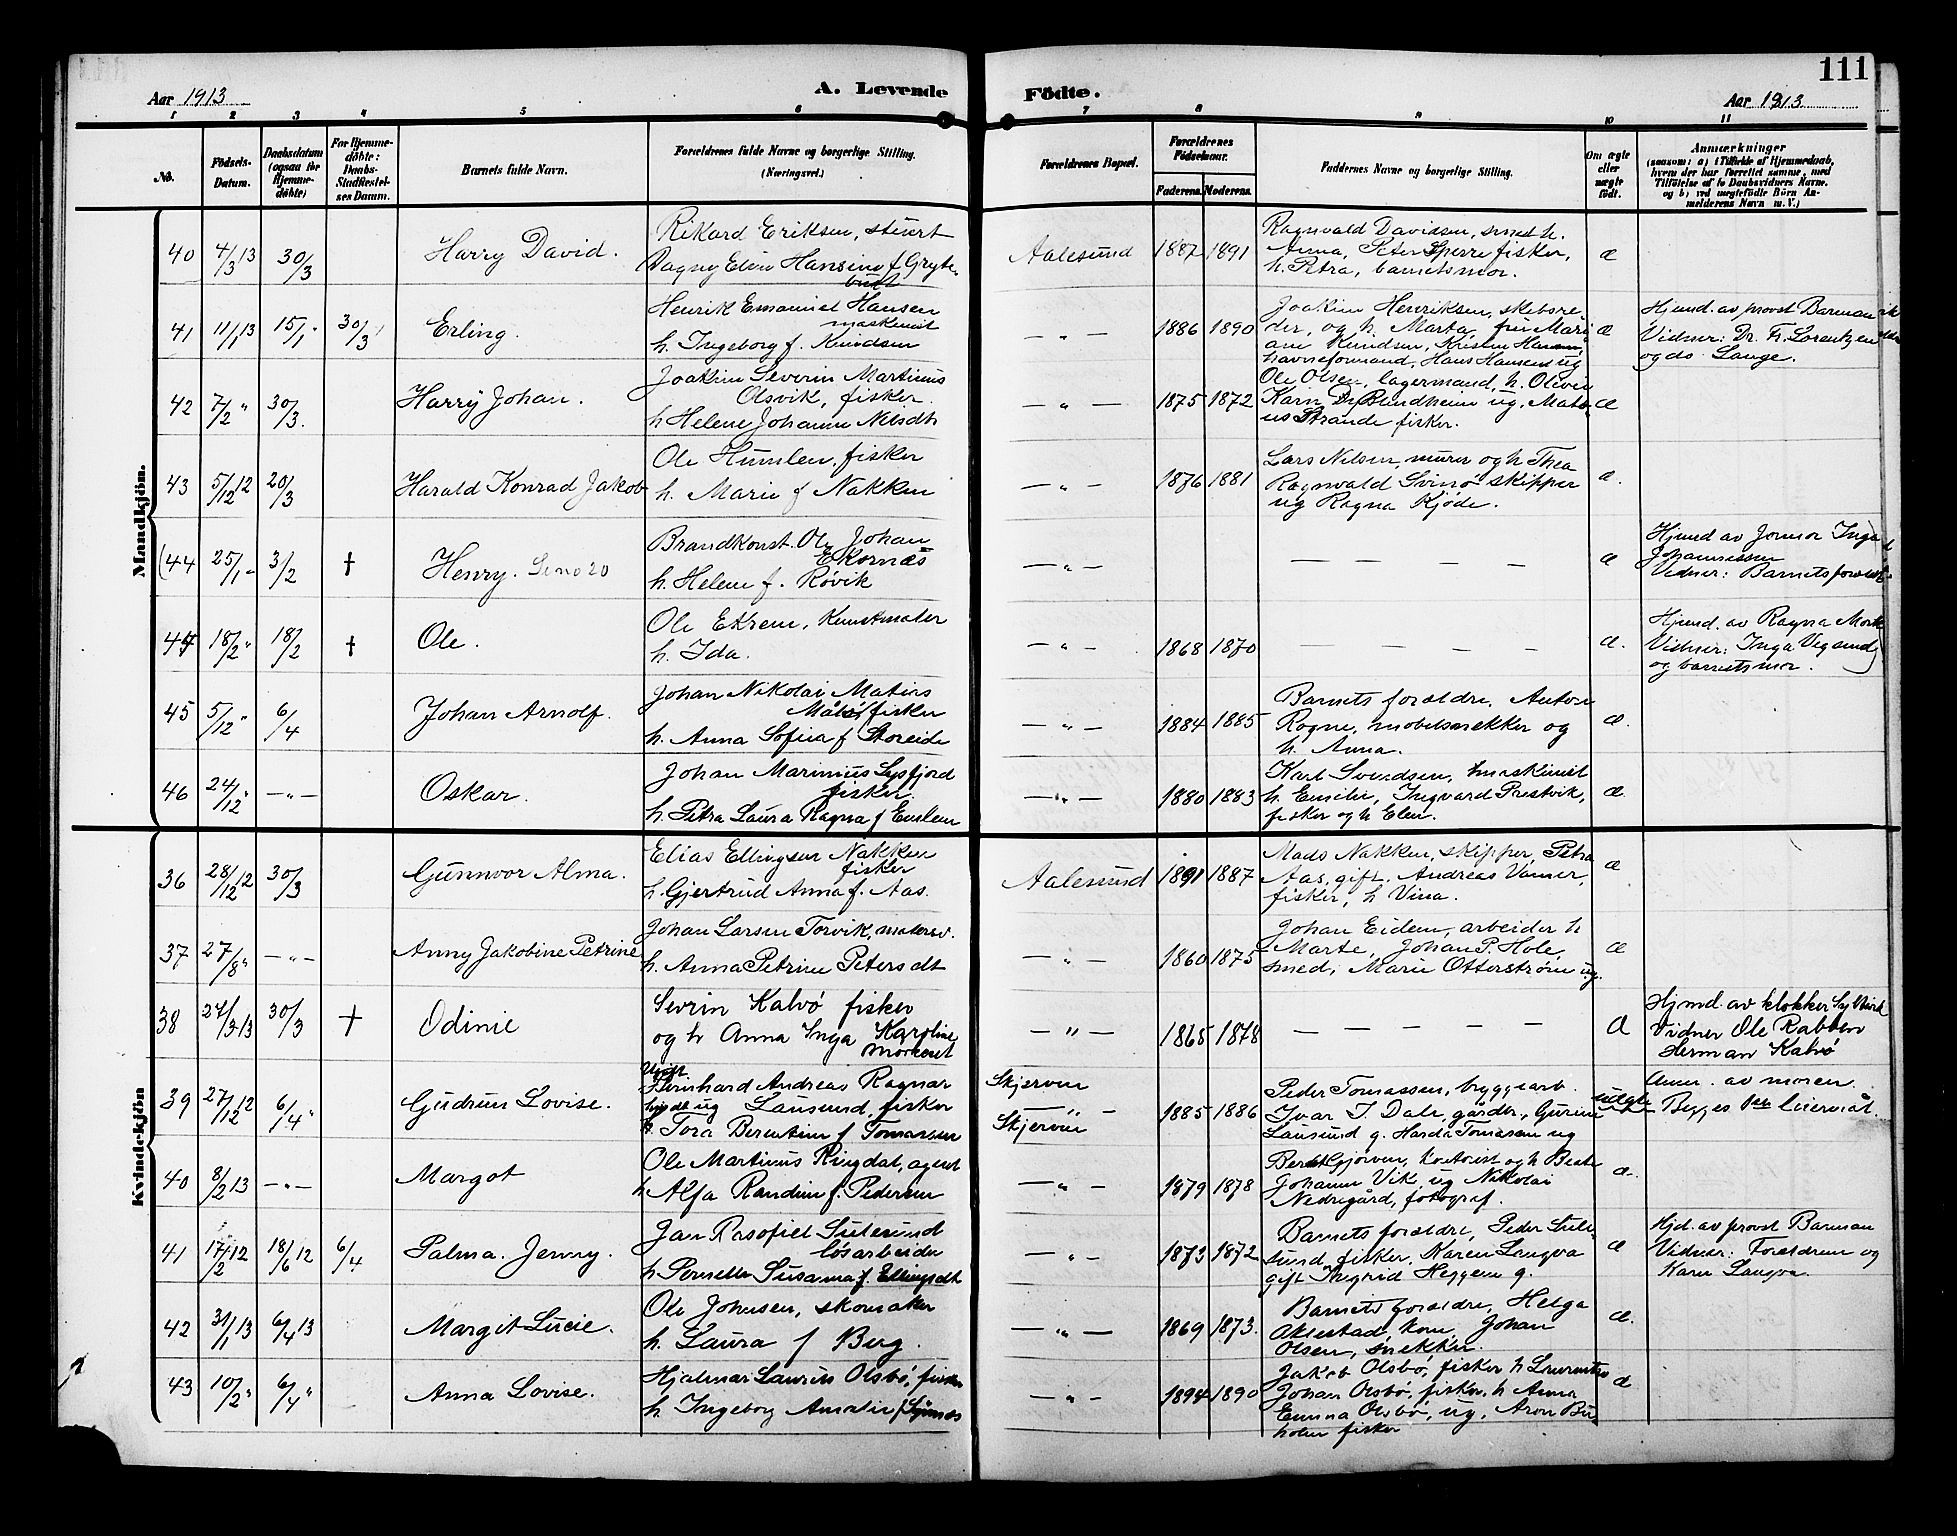 111
Aar 1913
A. Levende Födte.
Aar 1913
1 2 3 4 5 6 7 8 9 10 11
No.
Födsels-Datum.
Daabsdatum (ogsaa for Hjemmedöbte)
For Hjemmedöbte: Daabs-Stadfæstelses Datum.
Barnets fulde Navn.
Forældrenes fulde Navne og borgerlige Stilling.
(Næringsvei.)
Forældrenes Bopæl.
Forældrenes Födselsaar.
Faderens. Moderens.
Faddernes Navne og borgerlige Stilling.
Om ægte eller uægte födt.
Anmærkninger
(saasom: a) i Tilfælde af Hjemmedaab, hvem der har forrettet samme, med Tilföielse af to Daabsvidners Navne, og b) ved uægtefödte Börn Anmelderens Navn m. V.)
Mandkjön.
40 4/3 13 30/3 Harry David.
Rikard Eriksen, stuert
Dagny Elin Hansine f Grytebust
Aalesund 1887 1891
Ragnvald Davidsen, smed h.
Anna, Peter Sperre fisker,
h. Petra, barnetsmor.
æ
41 11/1 13 15/1 " 30/3 Erling.
Henrik Emanuel Hansen
maskinist
h. Ingeborg f. Knudsen
— " — 1886 1890
Joakim Henriksen, skibsreder, og h. Marta, fru Mariane Knudsen, Kristen Hansen,
havneformand, Hans Hansen ug
æ
Hjmd. av provst Barman
Vidner: Dr. Fr. Lorentzen
og do Lange.
42 7/2 " 30/3. Harry Johan.
Joakim Severin Martinus
Olsvik, fisker.
h Helene Johanne Nilsdtr
— " — 1875 1872
Ole Olsen, lagermand, h. Olivia
Karn Blindheim ug.
Strande fisker.
æ
43 5/12 12 20/3 Harald Konrad Jakob
Ole Humlen, fisker
h. Marie f Nakken
— " — 1876 1881
Lars Nilsen, murer og h Thea
Ragnvald Svinø skipper
ug Ragna Kjøde.
æ.
(44 25/1 – 3/2 † Henry. Se no 20
Brandkonst. Ole Johan
Ekornæs
h. Helene f. Røvik
— " — — — — — æ
Hjmd av Jormor Inga
Johannessen
Vidner: Barnets forældre
18/2 " 18/2 † Ole.
Ole Ekrem, Kunstmaler
h. Ida.
— " — 1868 1870 — — — — æ.
Hjmd. av Ragna Mork
Vidner: Inga Vegsund
og barnets mor.
45 5/12 " 6/4 Johan Arnolf.
Johan Nikolai Matias
fisker
h. Anna Sofia f Storeide
— " — 1884 1885
Barnets forældre, Anton
Rogne, møbelsnekker og
h. Anna.
æ.
46 24/12 " — " — Oskar.
Johan Marinius Sysfjord
fisker.
h. Petra Laura Ragna f Emlem
— " — 1880 1883
Karl Svendsen, maskinist
h. Emilie, Ingvard Prestvik,
fisker og h Elen.
æ.
Kvindekjön
36 28/12 12 30/3 Gunnvor Alma.
Elias Ellingsen Nakken
fisker
h. Gjertrud Anna f. Aas.
Aalesund 1891 1887
Mads Nakken, skipper, Petra
Aas, gift. Andreas
fisker, h Vina.
æ
37 27/8 " — " — Anny Jakobine Petrine
Johan Larsen Torvik,
h. Anna Petrine Petersdt
— " — 1860 1875
Johan Eidem, arbeider h
Marte, Johan P. Hole
smed, Marie Otterstrøm ug.
æ
38 24/3 13 30/3 † Odinie
Sevrin Kalvø fisker
og h Anna Inga Karoline
— " — 1865 1878 — — — — — æ
Hjmd. av klokker
Vidner Ole Rabben
Herman Kalvø
39 27/12 12 6/4 " Gudrun Lovise.
Bernhard Andreas Ragnar
Lausund, fisker
Tora Berentine f Tomassen
Skjerven
— " —
Skjerven
1885 1886
Peder Tomassen, byggearb.
Ivar T. Dale gårdbr., Gurine
Lausund g. Harda Tomasen ug
uegte
Anm. av moren.
Begges 1ste leiermål.
40 8/2 13 — " — Margot
Ole Martinus Ringdal, agent
h. Alfa Randine f. Pedersen
— " — 1879 1878
Gjørven, kontorist og h Beate
Johanne Vik, ug Nikolai
Nedregård, fotograf.
æ.
41 17/2 12 18/6 12 6/4 Palma. Jenny.
Jan Rasofiel Sulesund
løsarbeider
h Pernille Susanna f. Ellingsdt
— " — 1873 1872
Barnets forældre, Peder Sulesund, fisker, Karen Langva
gift Ingrid Heggem g.
æ
Hjd. av provst Barman
Vidner: Forældrene og
Karen Langva.
42 31/1 13 6/4 13 Margit Lucie.
Ole Johnsen, skomaker
h. Laura f Berg.
— " — 1869 1873.
Barnets forældre, Helga
Akslestad, kone, Johan
Olsen, snekker.
æ.
43 10/2 " 6/4 " Anna Lovise.
Hjalmar Laurits Olsbø, fisker
h. Ingeborg Amalie f
— " — 1894 1890
Jakob Olsbø, fisker h
Johan Olsbø, fisker, h Anna
Emma Olsbø, ug, Aron
holm fisker
æ